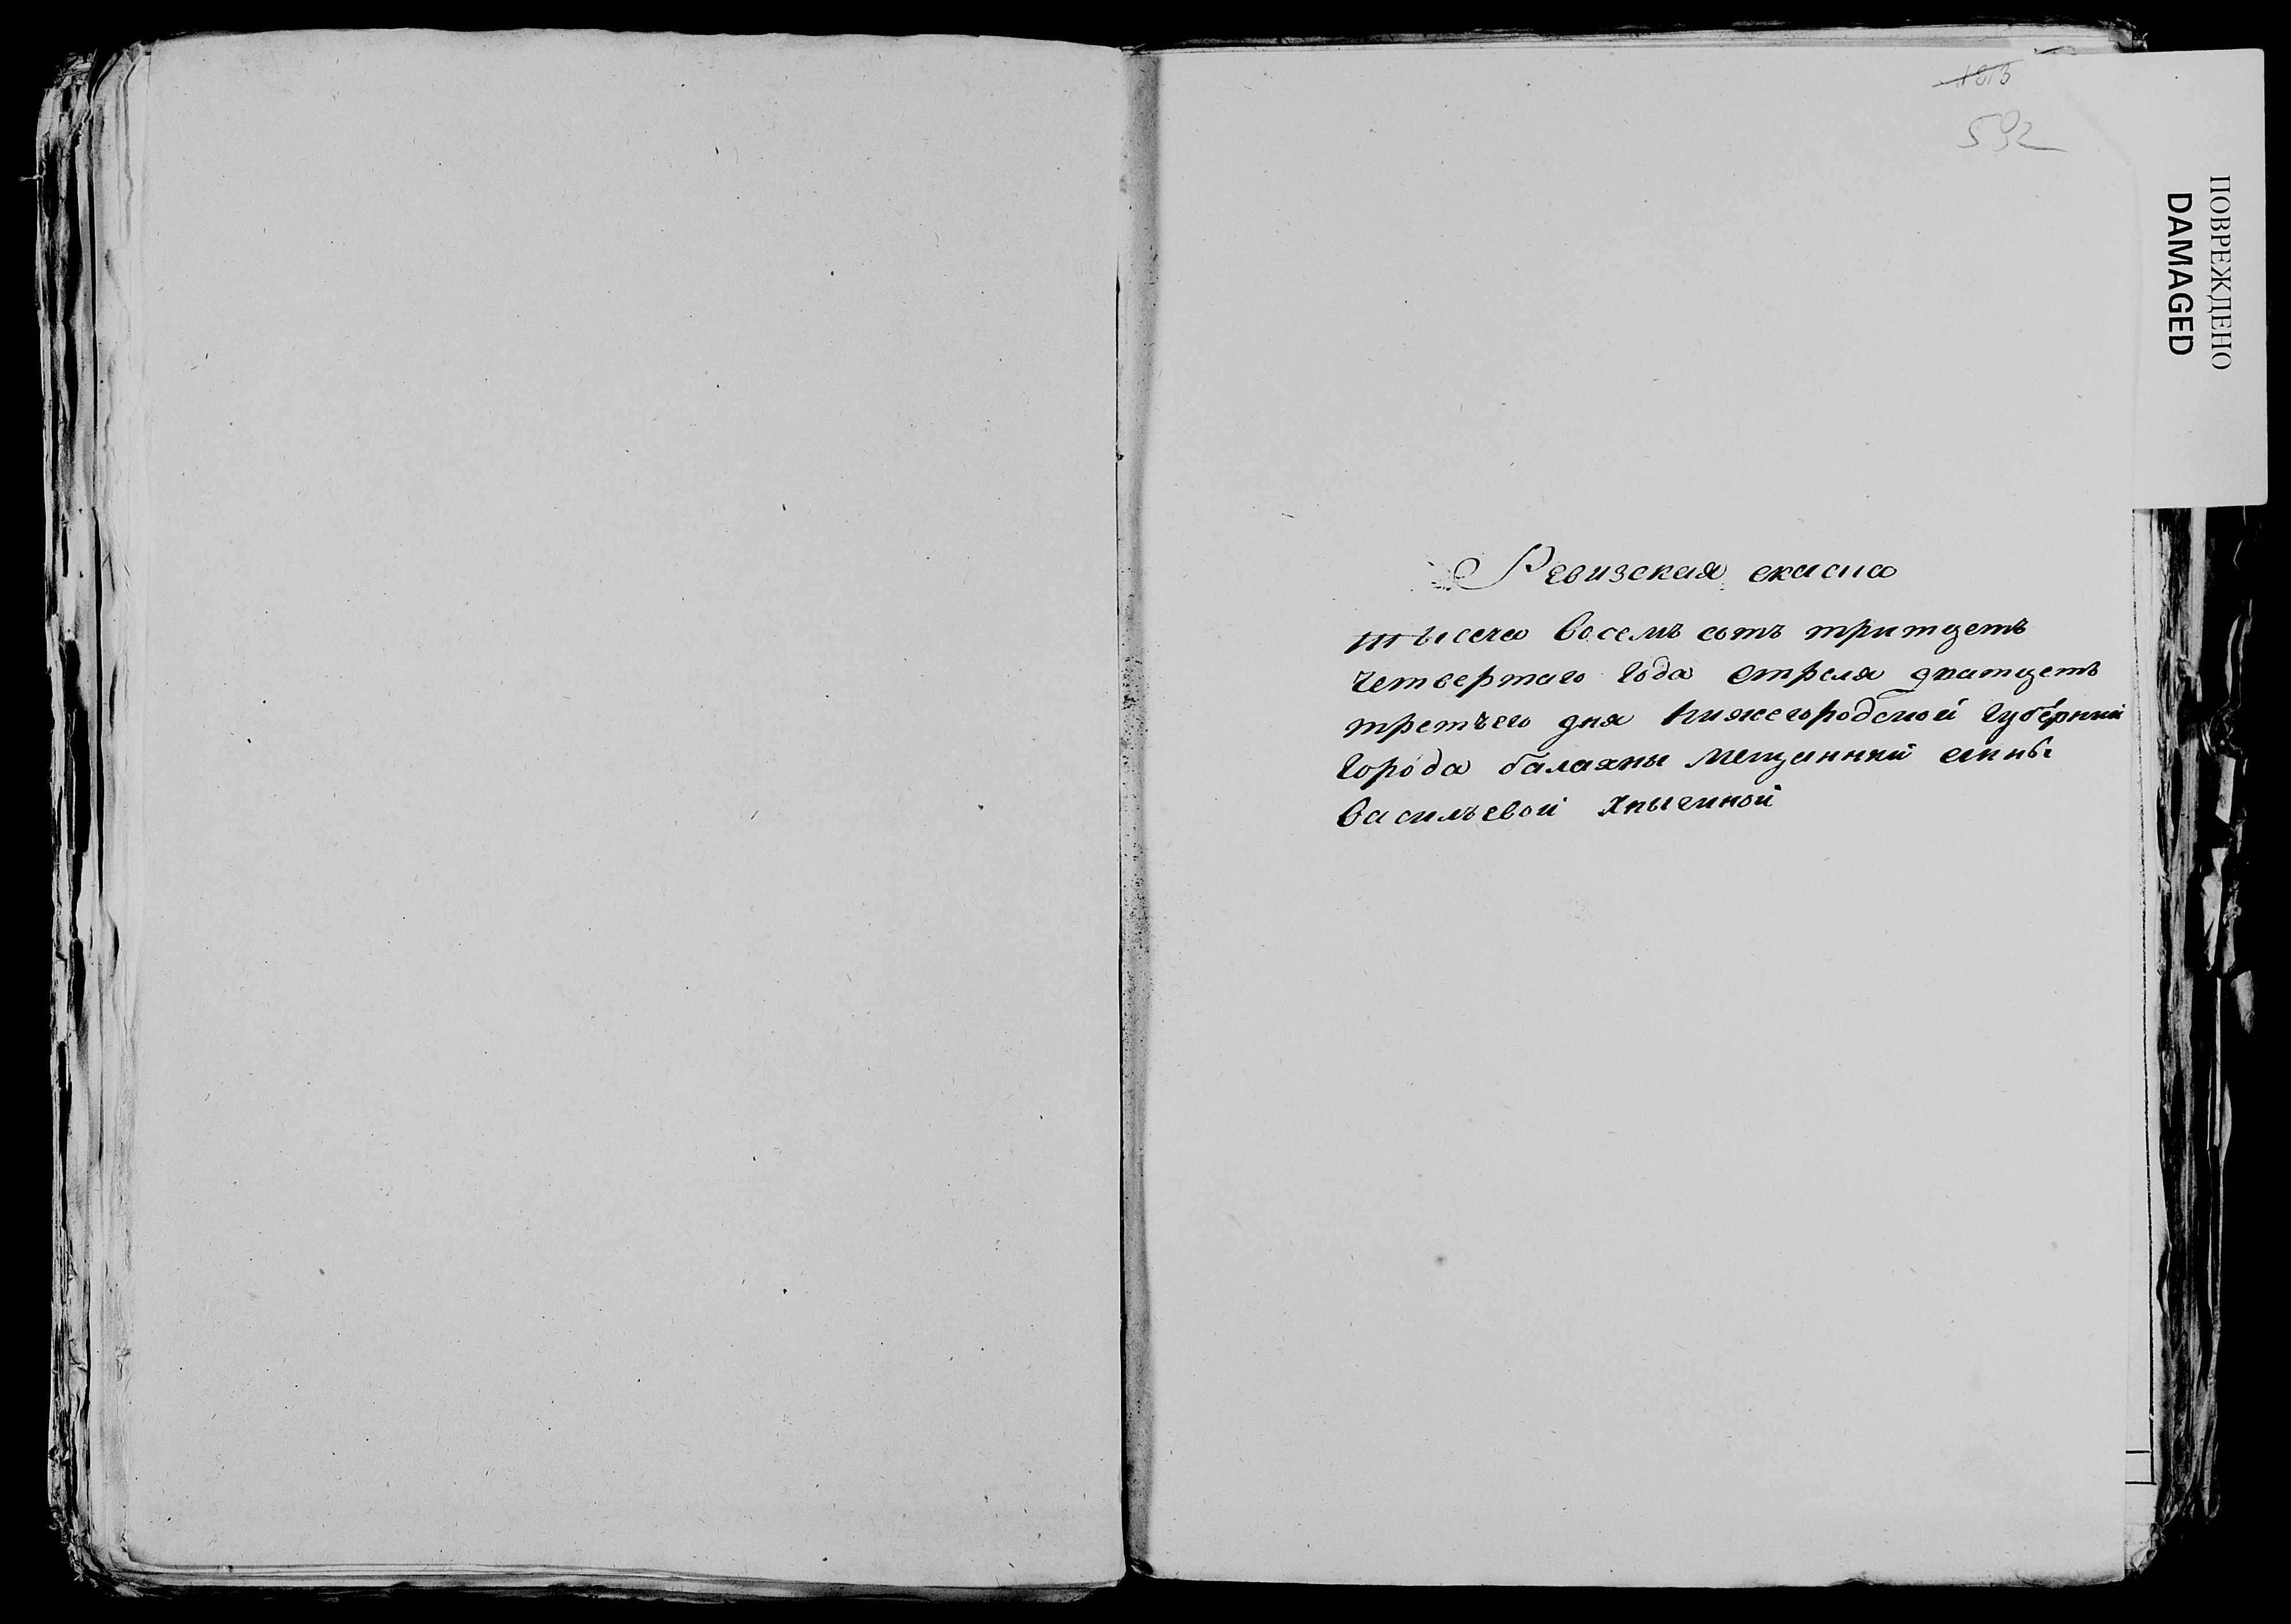 1213
592
ПОВРЕЖДЕНО
DAMAGED
Ревизская скаска
тысеча восемъ сотъ тритцеть
четвертаго года апреля дватцеть
третьего дня нижегородской губернии
города балахны мещаннки анны
васильевой